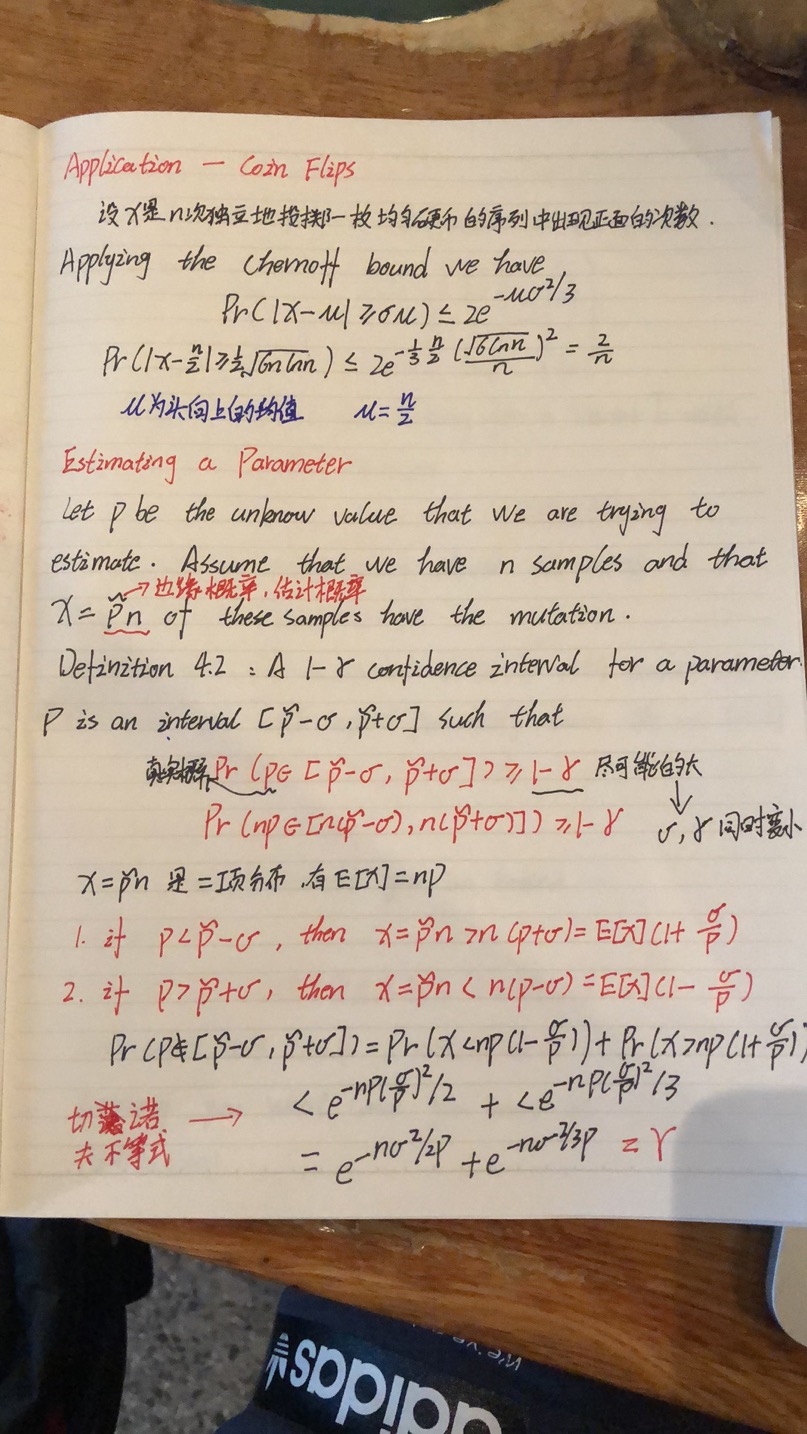 Application — Coin Flips
设X是n次独立地投掷一枚均匀硬币的序列中出现正面的次数.
Applying the Chernoff bound we have
Pr(|X-μ| ≥ σμ) ≤ 2e^{-μσ²/3}
Pr(|X-n/2| ≥ 1/2 √(6n ln n)) ≤ 2e^{-1/3 n/2 (√(6 ln n)/n)²} = 2/n
μ为头向上的均值 μ = n/2
Estimating a Parameter
Let p be the unknow value that we are trying to
estimate. Assume that we have n samples and that
→边缘概率,估计概率
X = p̃n of these samples have the mutation.
Definition 4.2 : A 1-γ confidence interval for a parameter
P is an interval [p̃-σ, p̃+σ] such that
真实概率 Pr(p∈[p̃-σ, p̃+σ]) ≥ 1-γ 尽可能的大
Pr(np∈[n(p̃-σ), n(p̃+σ)]) ≥ 1-γ σ,γ同时变小
X=p̃n 是二项分布,有E[X]=np
1. if p<p̃-σ, then X=p̃n >n(p+σ)= E[X](1+ σ/p)
2. if p>p̃+σ, then X=p̃n < n(p-σ) = E[X](1- σ/p)
Pr(p∉[p̃-σ, p̃+σ]) = Pr(X<np(1-σ/p)) + Pr(X>np(1+σ/p))
< e^{-np(σ/p)²/2} + <e^{-np(σ/p)²/3}
切诺夫不等式 →
= e^{-nσ²/2p} + e^{-nσ²/3p} = γ
adidas